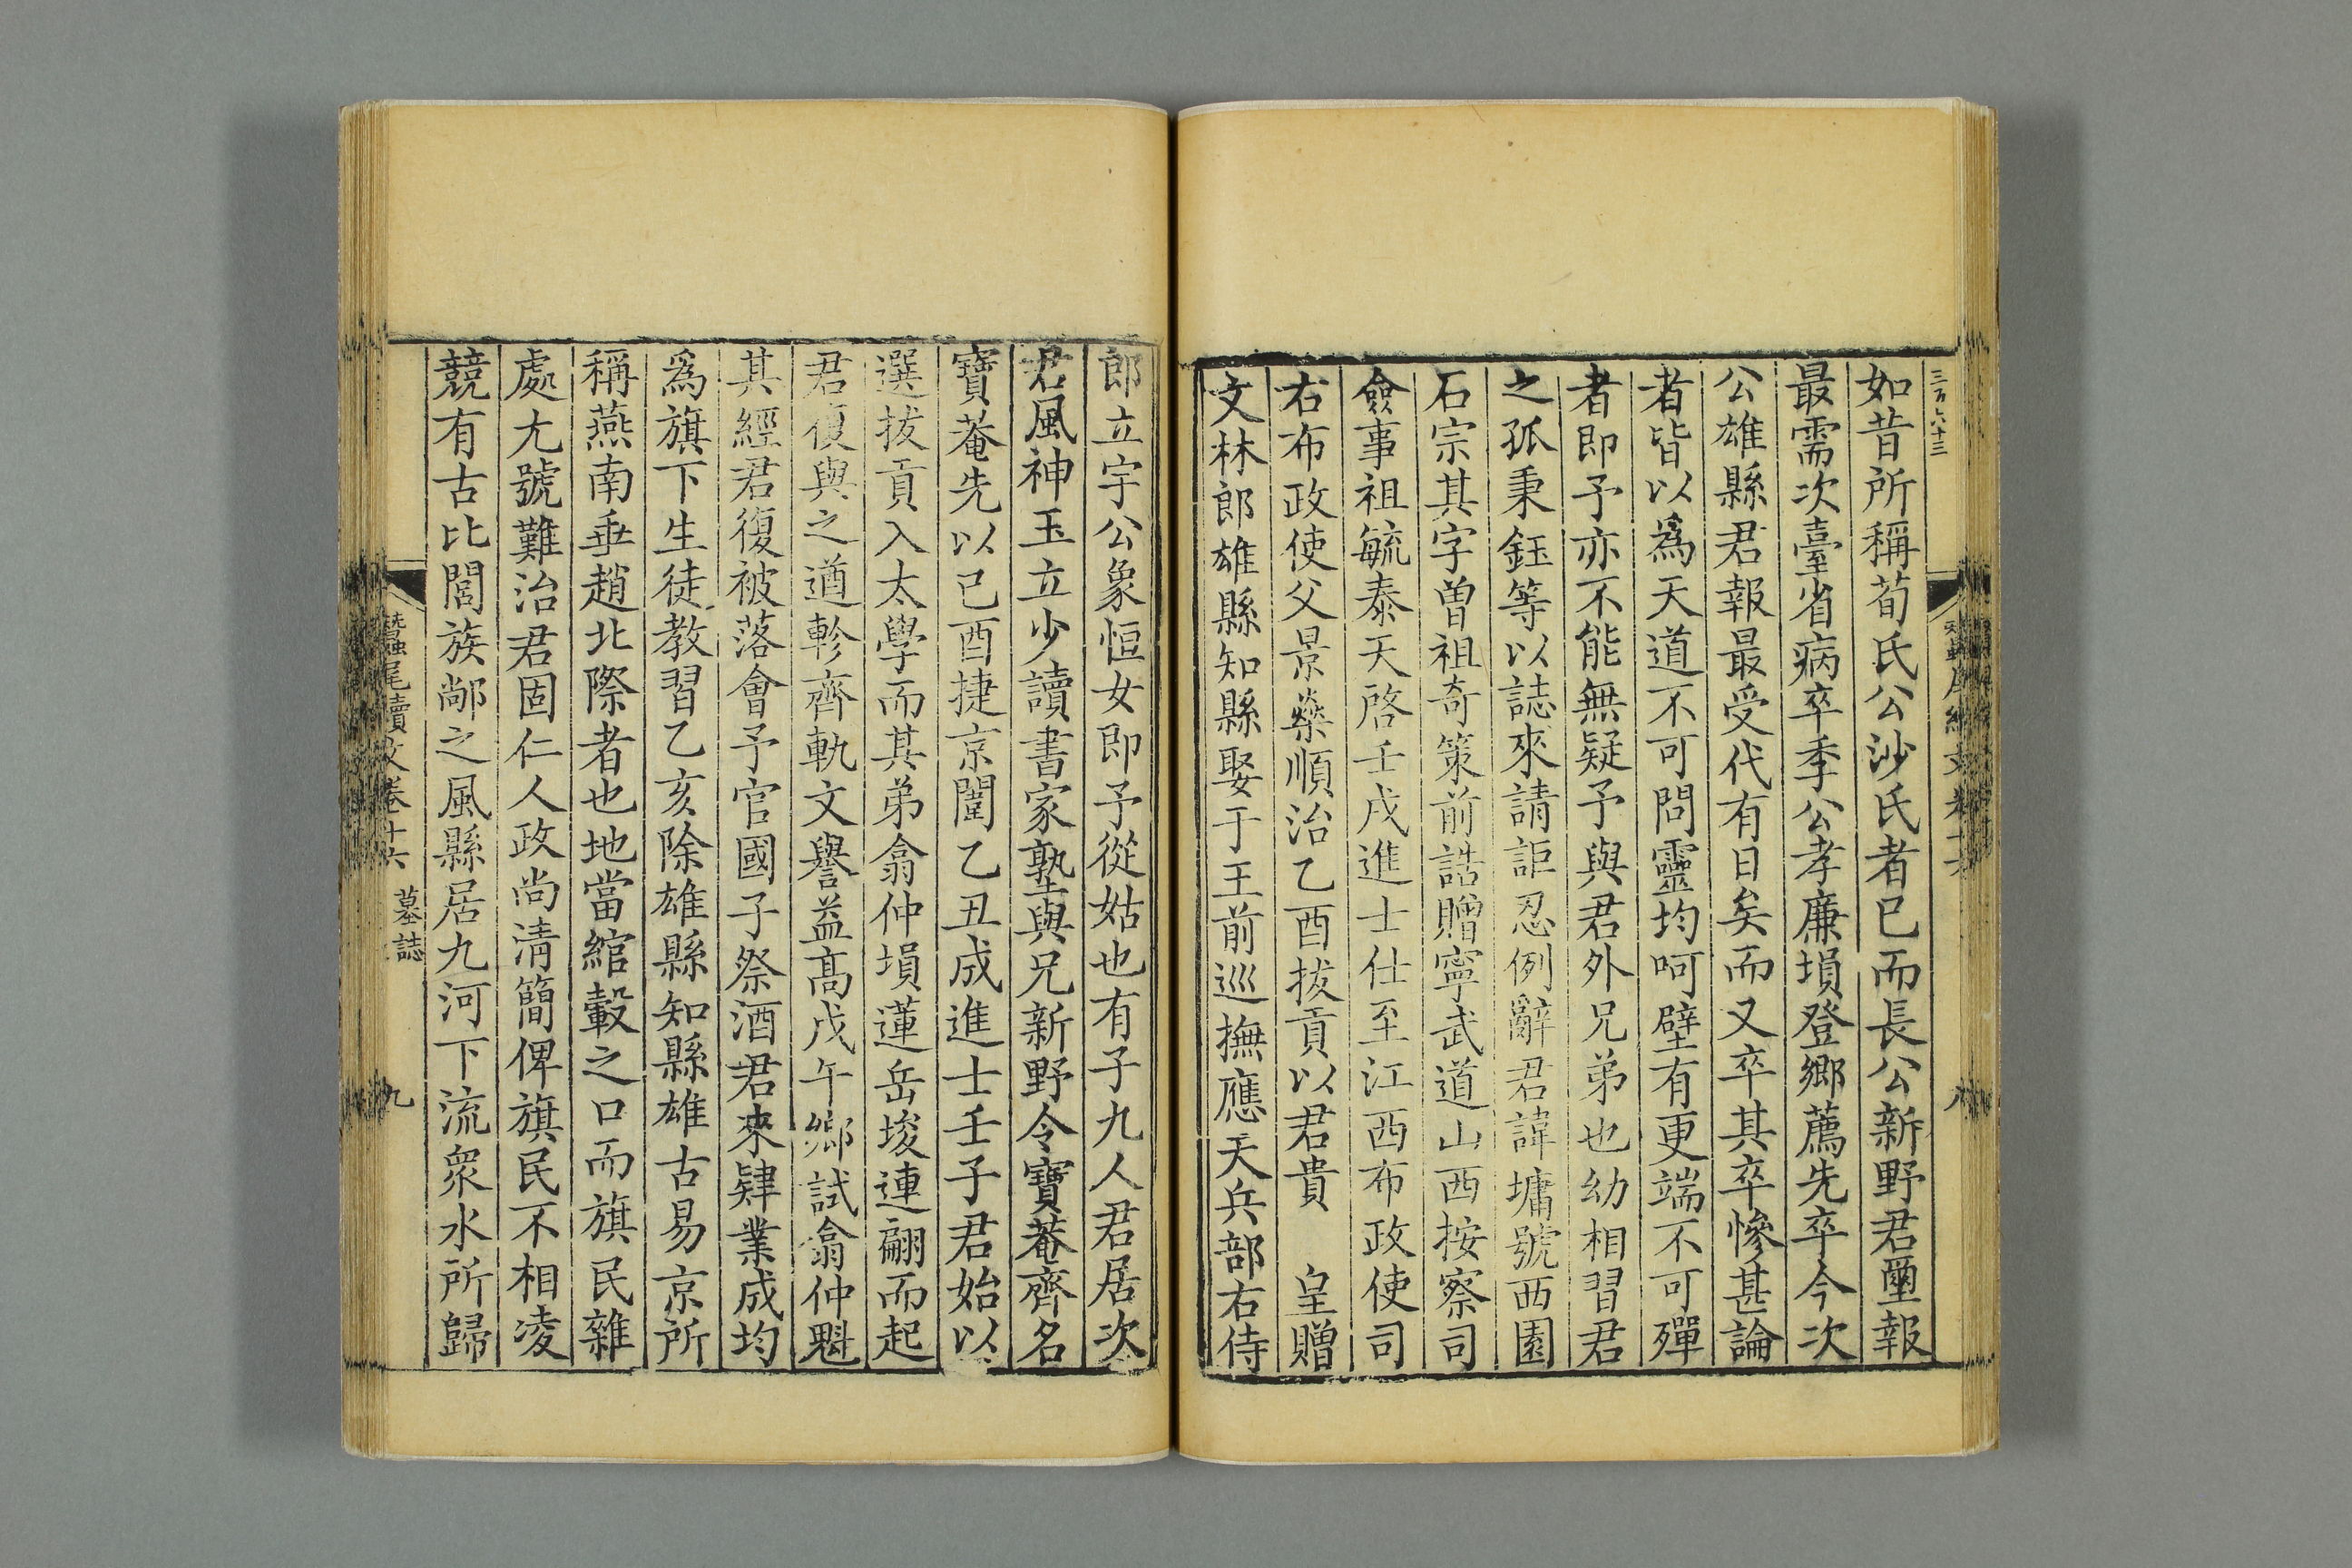 三百六十三
如昔所稱荀氏公沙氏者已而長公新野君壐報
最需次臺省病卒季公孝廉塤登鄉薦先卒今次
公雄縣君報最受代有日矣而又卒其卒慘甚論
者皆以爲天道不可問靈均呵壁有更端不可殫
者即予亦不能無疑予與君外兄弟也幼相習君
之孤秉鈺等以誌來請詎忍例辭君諱墉號西園
石宗其字曾祖奇策前誥贈寧武道山西按察司
僉事祖毓泰天啓壬戌進士仕至江西布政使司
右布政使父景藥順治乙酉拔貢以君貴 皇贈
文林郎雄縣知縣娶于王前巡撫應天兵部右侍
八
郎立宇公象恒女即予從姑也有子九人君居次
君風神玉立少讀書家塾與兄新野令寶菴齊名
寶菴先以己酉捷京闈乙丑成進士壬子君始以
選拔貢入太學而其弟翕仲塤蓮岳埈連翩而起
君復與之遒軫齊軌文譽益高戊午鄉試翕仲魁
其經君復被落會予官國子祭酒君來肄業成均
爲旗下生徒教習乙亥除雄縣知縣雄古易京所
稱燕南垂趙北際者也地當綰轂之口而旗民雜
處尤號難治君固仁人政尚清簡俾旗民不相凌
競有古比閭族鄰之風縣居九河下流眾水所歸
蠶尾續文卷十六 墓誌 九